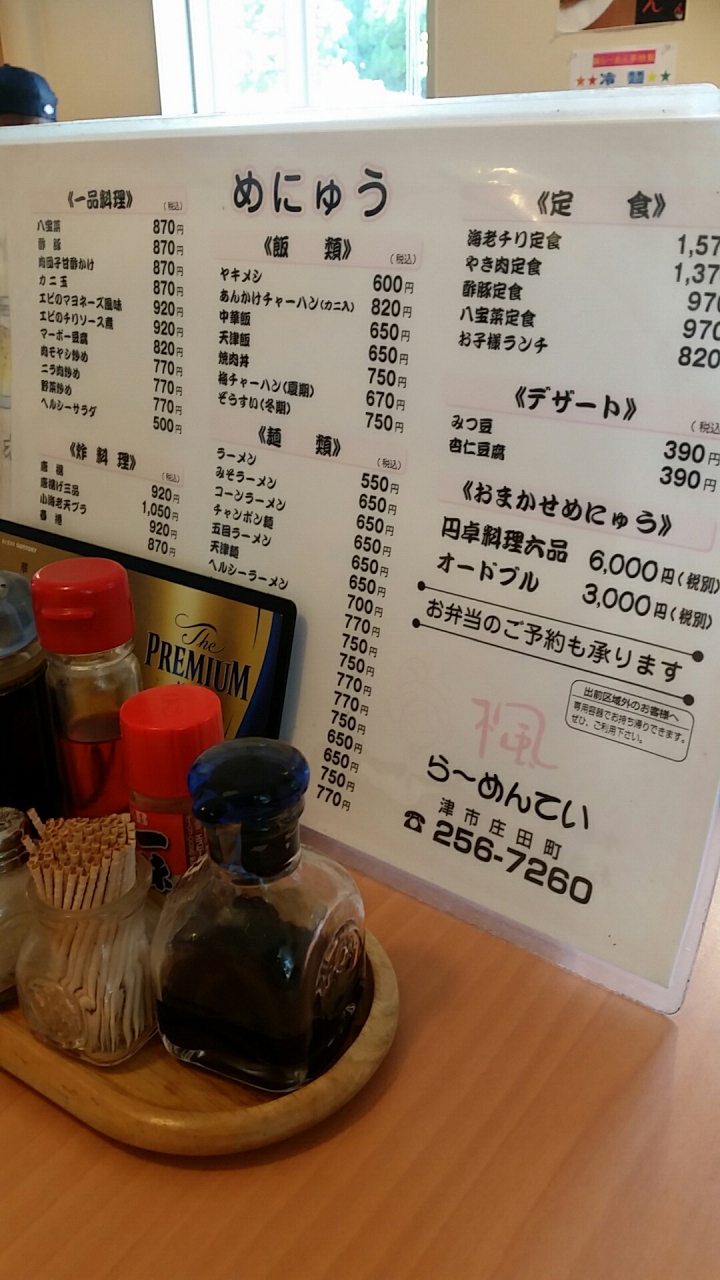 冷麺
めにゅう
《一品料理》 (税込)
八宝菜 870円
酢豚 870円
肉団子甘酢かけ 870円
カニ玉 870円
エビのマヨネーズ風味 920円
エビのチリソース煮 920円
マーボー豆腐 820円
肉モヤシ炒め 770円
ニラ肉炒め 770円
野菜炒め 770円
ヘルシーサラダ 500円
《炸料理》 (税込)
唐揚 920円
唐揚げ三品 1,050円
小海老天プラ 920円
春捲 870円
《飯類》 (税込)
ヤキメシ 600円
あんかけチャーハン(カニ入) 820円
中華飯 650円
天津飯 650円
焼肉丼 750円
梅チャーハン(夏期) 670円
ぞうすい(冬期) 750円
《麺類》 (税込)
ラーメン 550円
みそラーメン 650円
コーンラーメン 650円
チャンポン麺 650円
五目ラーメン 650円
天津麺 650円
ヘルシーラーメン 700円
770円
750円
750円
770円
770円
750円
650円
650円
750円
770円
《定食》
海老チリ定食 1,57
やき肉定食 1,37
酢豚定食 970
八宝菜定食 970
お子様ランチ 820
《デザート》 (税込
みつ豆 390円
杏仁豆腐 390円
《おまかせめにゅう》
円卓料理六品 6,000円(税別)
オードブル 3,000円(税別)
お弁当のご予約も承ります
出前区域外のお客様へ
専用容器でお持ち帰りできます。
ぜひ、ご利用下さい。
楓
ら〜めんてい
津市庄田町
☎256-7260
The
PREMIUM
一味